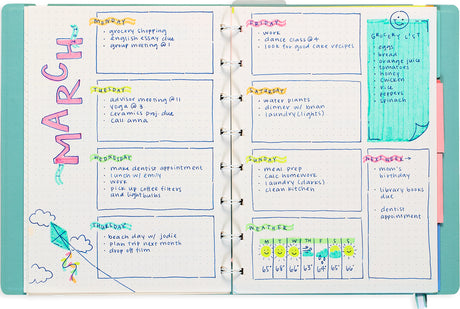 MARCH
MONDAY
grocery shopping
english essay due
group meeting @ 1
TUESDAY
advisor meeting @ 11
yoga @ 3
ceramics proj due
call anna
WEDNESDAY
make dentist appointment
lunch w/ emily
work
pick up coffee filters
and lightbulbs
THURSDAY
beach day w/ jodie
plan trip next month
drop off film
FRIDAY
work
dance class @ 4
look for good cake recipes
SATURDAY
water plants
dinner w/ brian
laundry (lights)
SUNDAY
meal prep
calc homework
laundry (darks)
clean kitchen
WEATHER
M T W T F S S
65° 68° 66° 63° 64° 65° 66°
GROCERY LIST
eggs
bread
orange juice
tomatoes
honey
chicken
rice
peppers
spinach
NEXT WEEK
mom's
birthday
library books
due
dentist
appointment